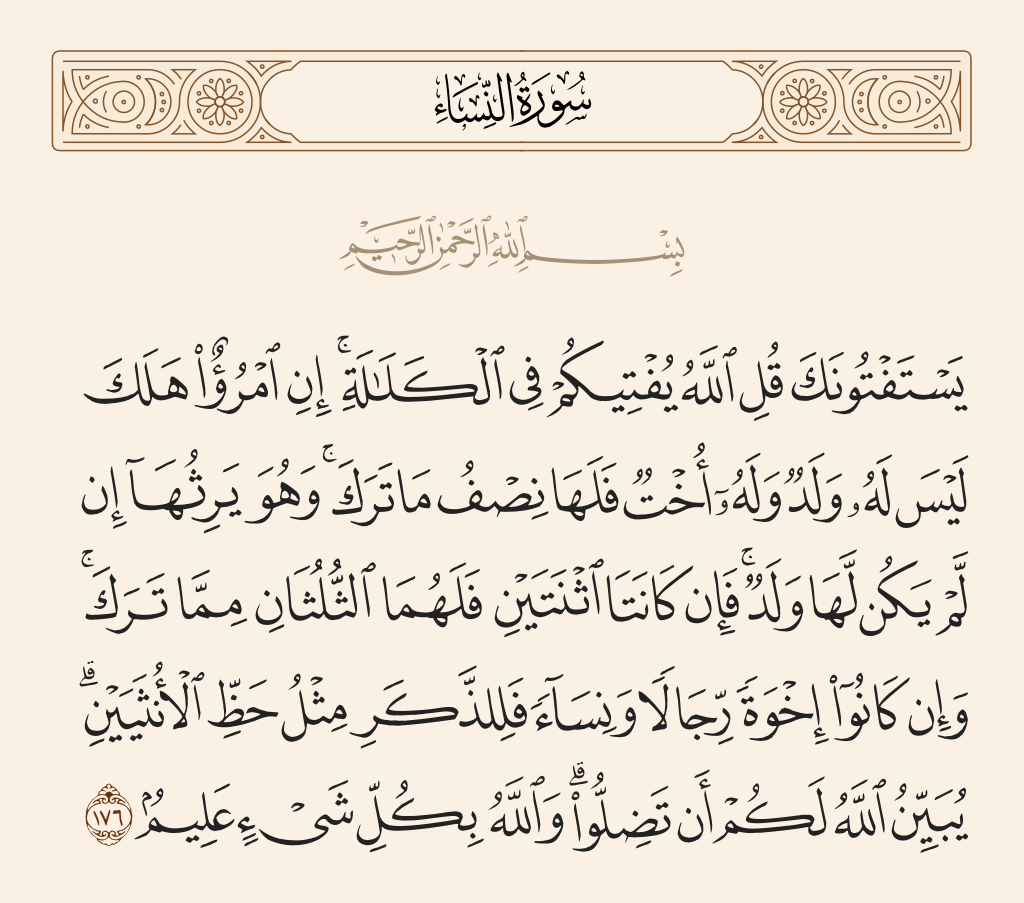 سُورَةُ النِّسَاءِ
بِسْمِ ٱللَّهِ ٱلرَّحْمَٰنِ ٱلرَّحِيمِ
يَسْتَفْتُونَكَ قُلِ ٱللَّهُ يُفْتِيكُمْ فِى ٱلْكَلَٰلَةِ ۚ إِنِ ٱمْرُؤٌا۟ هَلَكَ
لَيْسَ لَهُۥ وَلَدٌ وَلَهُۥٓ أُخْتٌ فَلَهَا نِصْفُ مَا تَرَكَ ۚ وَهُوَ يَرِثُهَآ إِن
لَّمْ يَكُن لَّهَا وَلَدٌ ۚ فَإِن كَانَتَا ٱثْنَتَيْنِ فَلَهُمَا ٱلثُّلُثَانِ مِمَّا تَرَكَ ۚ
وَإِن كَانُوٓا۟ إِخْوَةً رِّجَالًا وَنِسَآءً فَلِلذَّكَرِ مِثْلُ حَظِّ ٱلْأُنثَيَيْنِ ۗ
يُبَيِّنُ ٱللَّهُ لَكُمْ أَن تَضِلُّوا۟ ۗ وَٱللَّهُ بِكُلِّ شَىْءٍ عَلِيمٌۢ ١٧٦